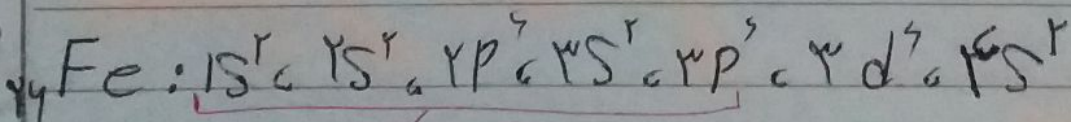 ₂₆Fe: ۱s^۲، ۲s^۲، ۲p^۶، ۳s^۲، ۳p^۶، ۳d^۶، ۴s^۲